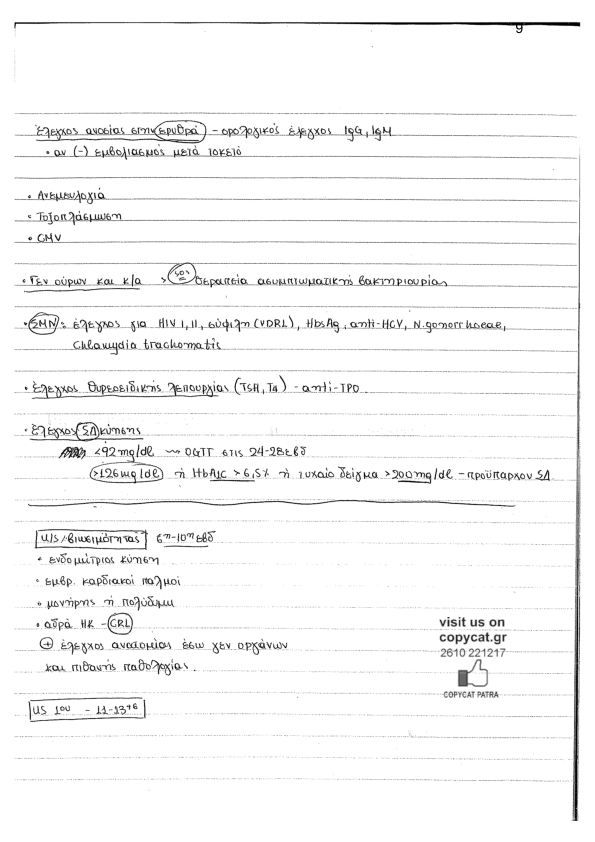 9
Έλεγχος ανοσίας στην ερυθρά - ορολογικός έλεγχος IgG, IgM
• αν (-) εμβολιασμός μετά τοκετό
• Ανεμευλογιά
• Τοξοπλάσμωση
• CMV
• Γεν ούρων και κ/α → SOS θεραπεία ασυμπτωματικής βακτηριουρίας
• ΣΜΝ: έλεγχος για HIV I, II, σύφιλη (VDRL), HbsAg, anti-HCV, N.gonorrhoeae,
Chlamydia trachomatis
• Έλεγχος θυρεοειδικής λειτουργίας (TSH, T4) - anti-TPO
• Έλεγχος ΣΔ κύησης
<92 mg/dl ⇝ OGTT στις 24-28εβδ
>126 mg/dl ή HbA1C > 6,5% ή τυχαίο δείγμα >200 mg/dl - προϋπάρχον ΣΔ
U/S βιωσιμότητας 6η-10η εβδ
• ενδομήτριος κύηση
• εμβρ. καρδιακοί παλμοί
• μονήρης ή πολύδυμη
• αδρά ΗΚ - CRL
⊕ έλεγχος ανατομίας έσω γεν οργάνων
και πιθανής παθολογίας.
US 1ου - 11-13+6
visit us on
copycat.gr
2610 221217
COPYCAT PATRA